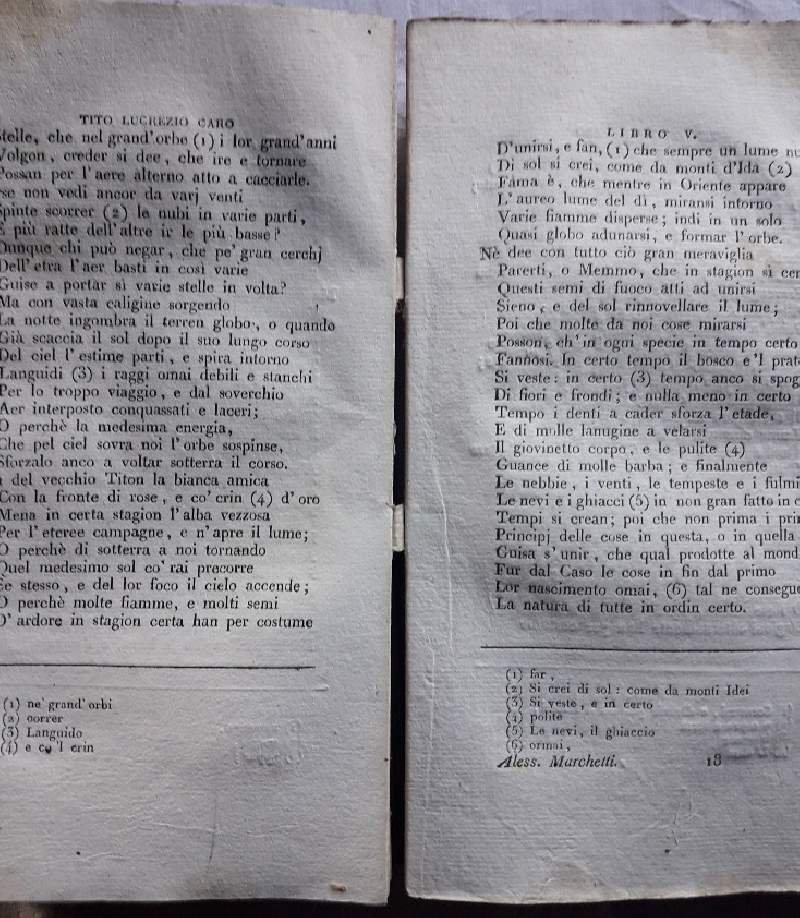 TITO LUCREZIO CARO
stelle, che nel grand'orbe (1) i lor grand'anni
Volgon, creder si dee, che ire e tornare
Possan per l'aere alterno atto a cacciarle.
non vedi ancor da varj venti
Spinte scorrer (2) le nubi in varie parti,
E più ratte dell'altre ir le più basse?
Dunque chi può negar, che pe' gran cerchj
Dell'etra l'aer basti in così varie
Guise a portar sì varie stelle in volta?
Ma con vasta caligine sorgendo
La notte ingombra il terren globo, o quando
Già scaccia il sol dopo il suo lungo corso
Del ciel l'estime parti, e spira intorno
Languidi (3) i raggi omai debili e stanchi
Per lo troppo viaggio, e dal soverchio
Aer interposto conquassati e laceri;
O perchè la medesima energia,
Che pel ciel sovra noi l'orbe sospinse,
Sforzalo anco a voltar sotterra il corso.
del vecchio Titon la bianca amica
Con la fronte di rose, e co' crin (4) d'oro
Mena in certa stagion l'alba vezzosa
Per l'eteree campagne, e n'apre il lume;
O perchè di sotterra a noi tornando
Quel medesimo sol co' rai precorre
Se stesso, e del lor foco il cielo accende;
O perchè molte fiamme, e molti semi
D'ardore in stagion certa han per costume
(1) ne' grand'orbi
(2) correr
(3) Languido
(4) e co 'l crin
LIBRO V.
D'unirsi, e fan, (1) che sempre un lume
Di sol si crei, come da monti d'Ida (2)
Fama è, che mentre in Oriente appare
L'aureo lume del dì, miransi intorno
Varie fiamme disperse; indi in un solo
Quasi globo adunarsi, e formar l'orbe.
Nè dee con tutto ciò gran meraviglia
Parerti, o Memmo, che in stagion sì
Questi semi di fuoco atti ad unirsi
Sieno, e del sol rinnovellare il lume;
Poi che molte da noi cose mirarsi
Posson, ch'in ogni specie in tempo certo
Fannosi. In certo tempo il bosco e'l
Si veste: in certo (3) tempo anco si
Di fiori e frondi; e nulla meno in certo
Tempo i denti a cader sforza l'etade,
E di molle lanugine a velarsi
Il giovinetto corpo, e le pulite (4)
Guance di molle barba; e finalmente
Le nebbie, i venti, le tempeste e i
Le nevi e i ghiacci (5) in non gran fatto in
Tempi si crean; poi che non prima i
Principj delle cose in questa, o in quella
Guisa s'unir, che qual prodotte al
Fur dal Caso le cose in fin dal primo
Lor nascimento omai, (6) tal ne
La natura di tutte in ordin certo.
(1) far,
(2) Si crei di sol: come da monti Idei
(3) Si veste, e in certo
(4) polite
(5) Le nevi, il ghiaccio
(6) ormai,
Aless. Marchetti. 18